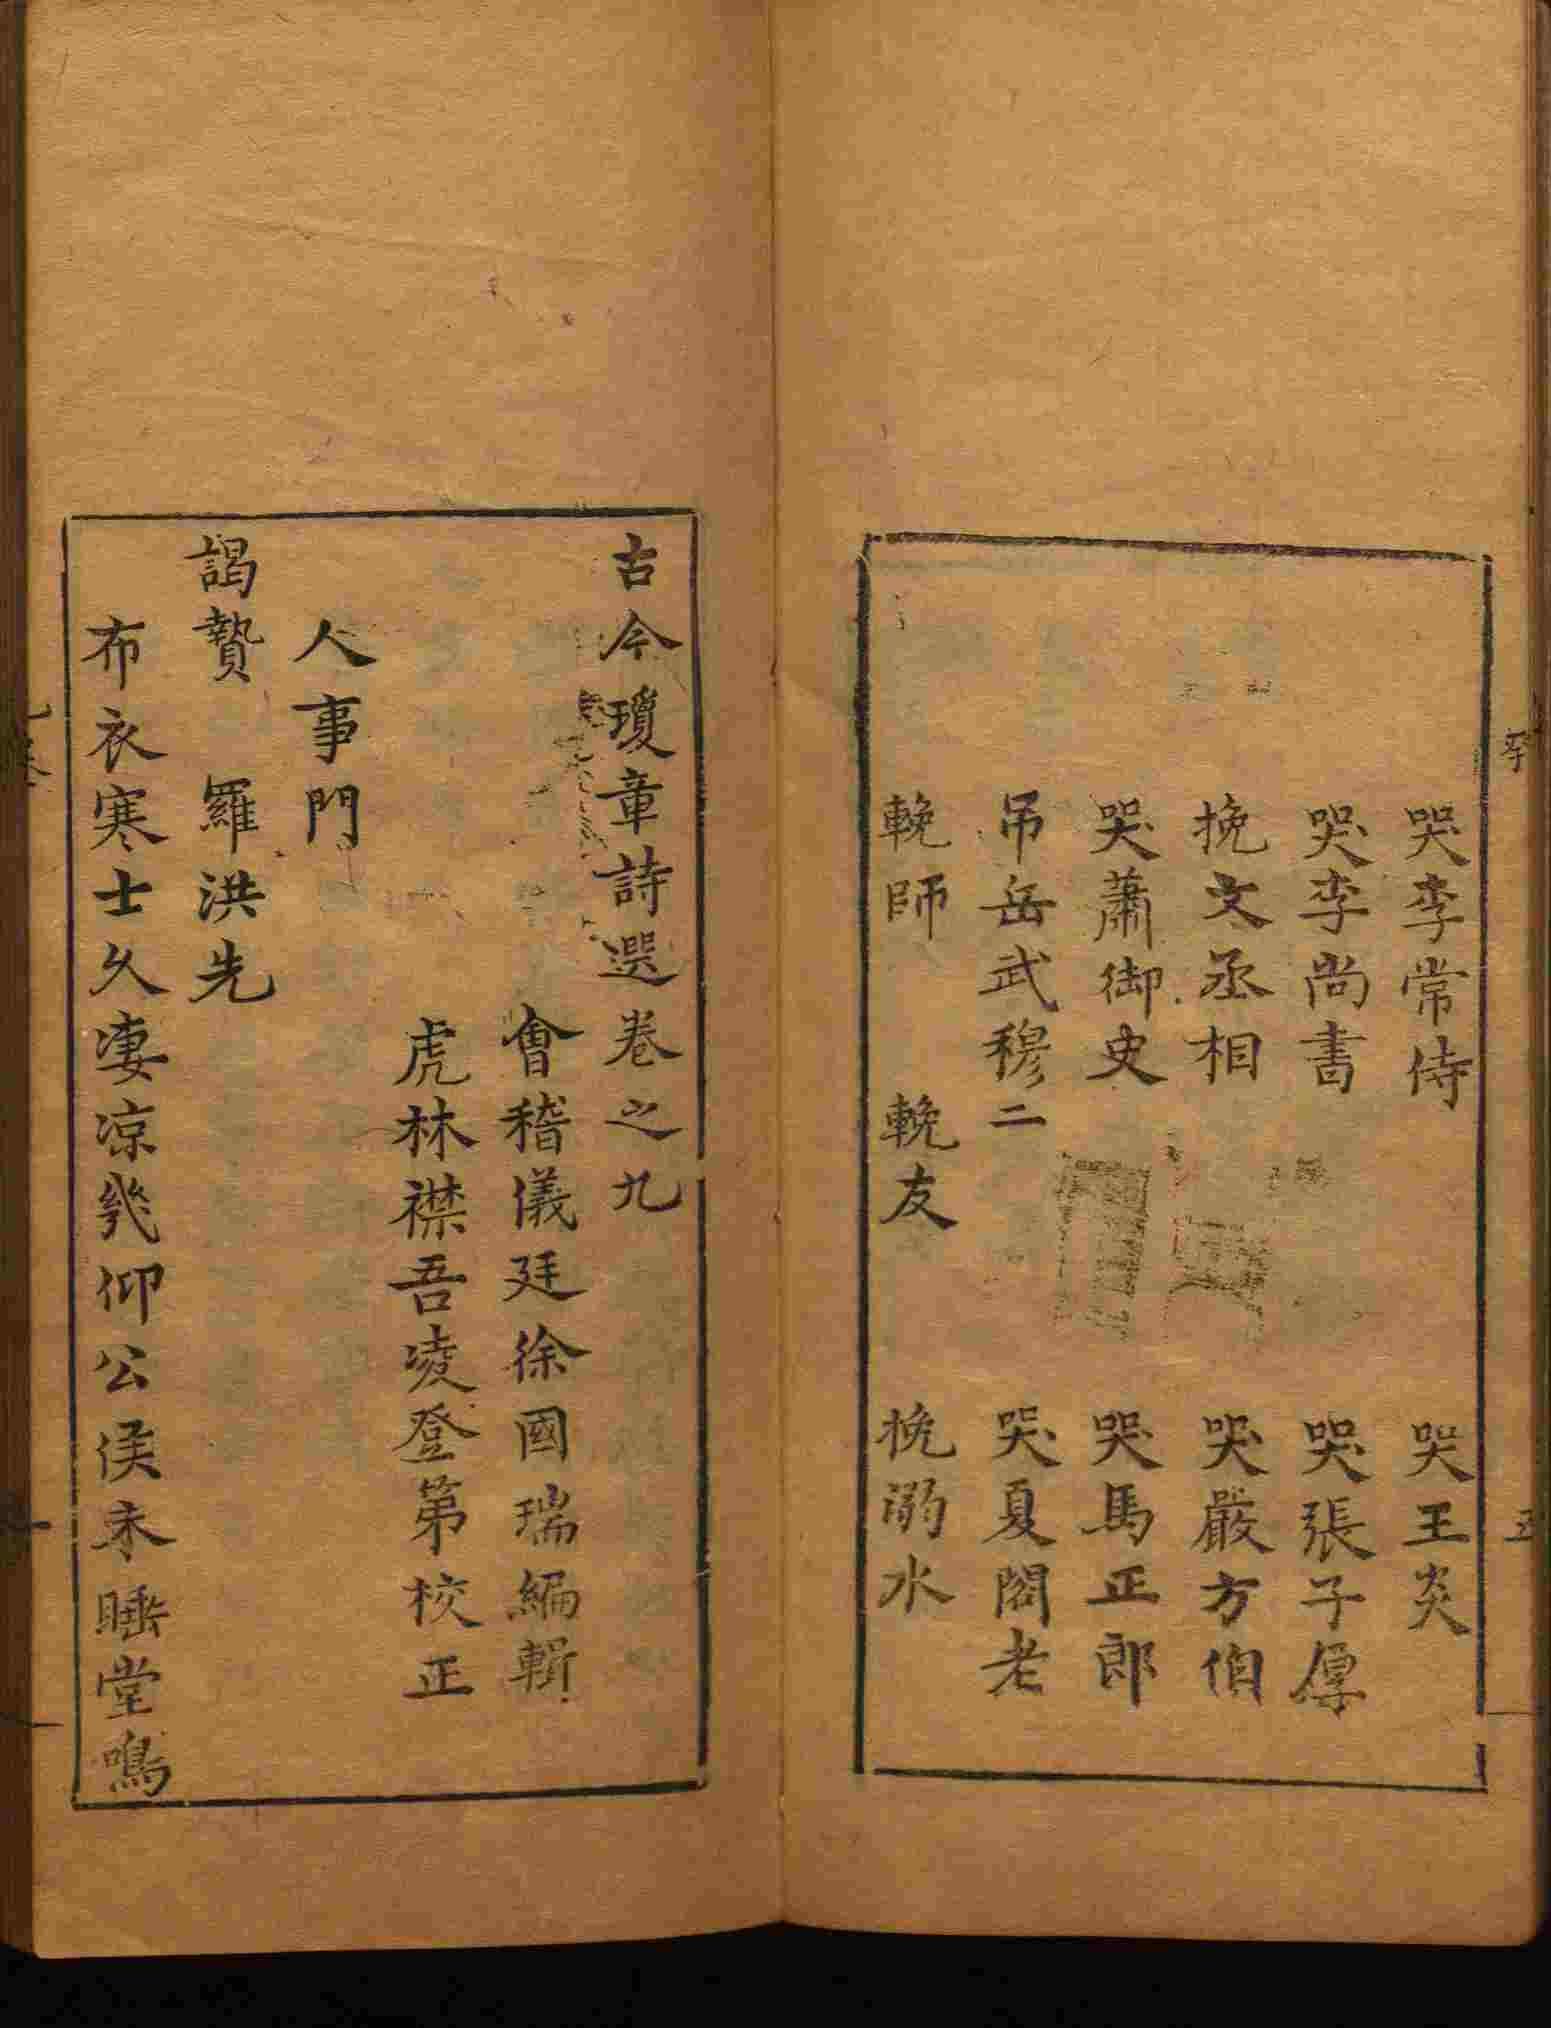 哭李常侍 哭王炎
哭李尚書 哭張子厚
挽文丞相 哭嚴方伯
哭蕭御史 哭馬正郎
吊岳武穆二 哭夏閣老
輓師 輓友 挽溺水
古今瓊章詩選卷之九
會稽儀廷徐國瑞編輯
虎林襟吾凌登第校正
人事門
謁贄 羅洪先
布衣寒士久凄凉幾仰公侯未睡堂鳴